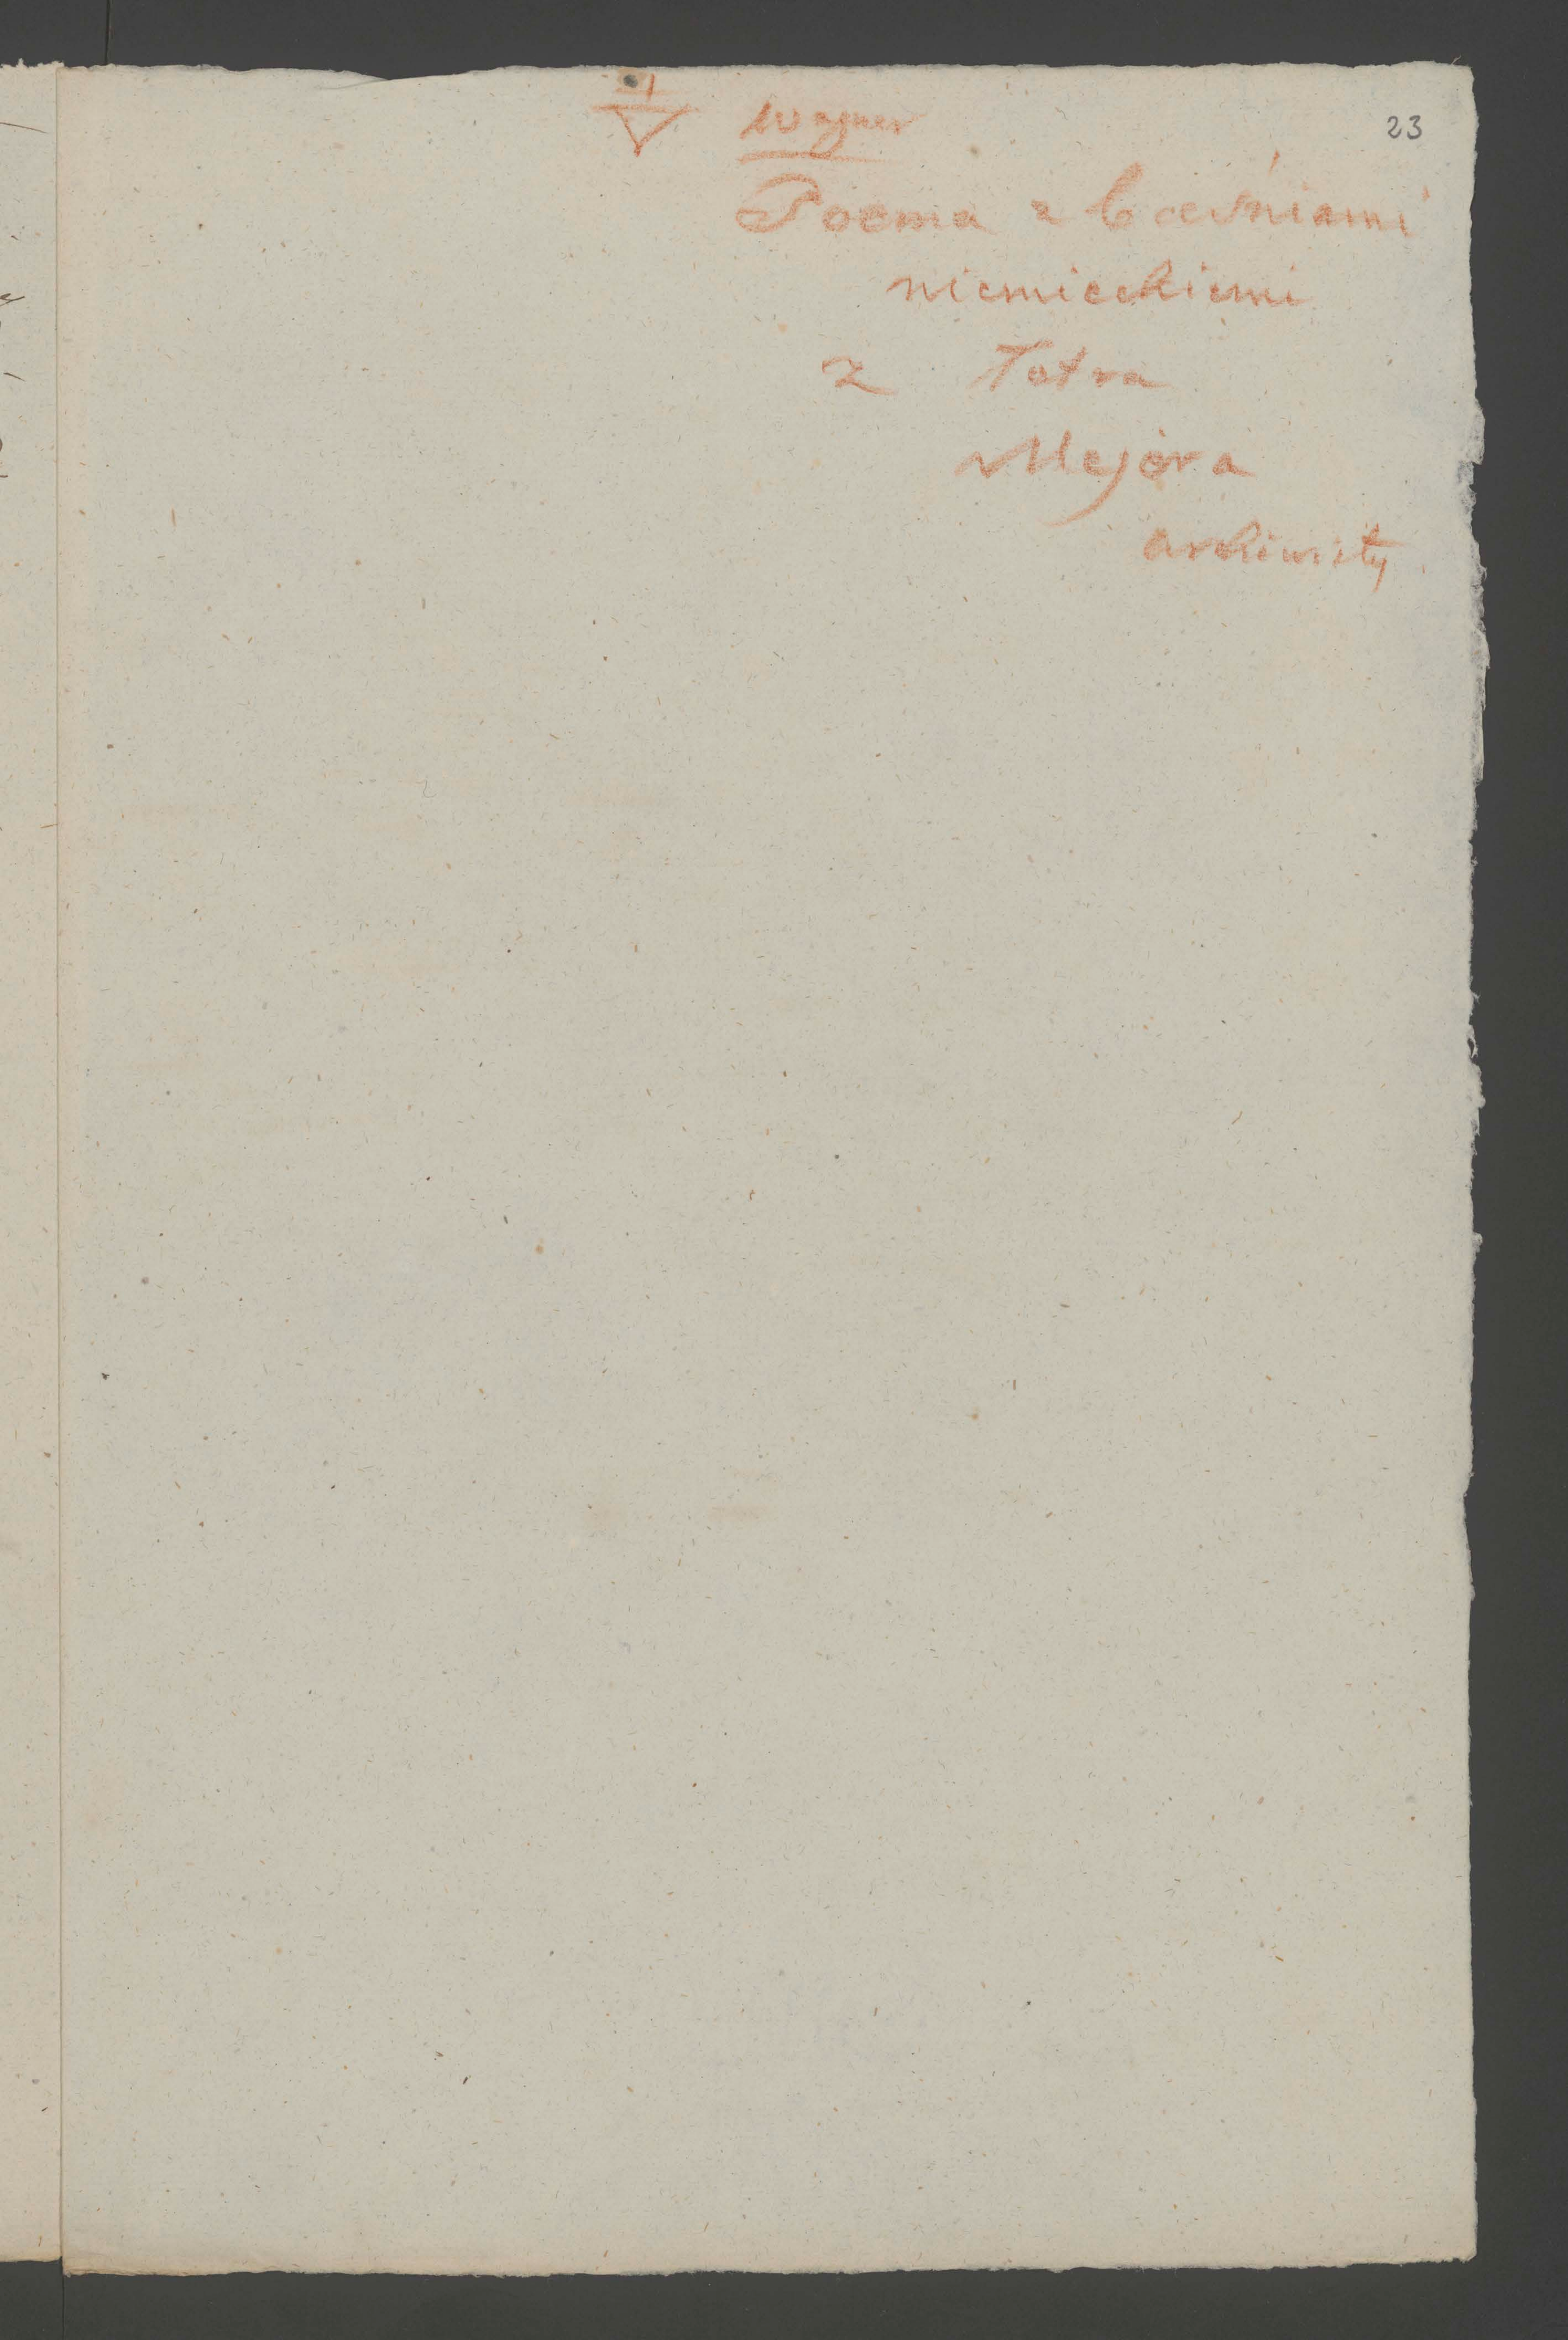 Wagner
23
Poema z baśniami
niemieckiemi
z Tatra
Mejóra
archiwisty